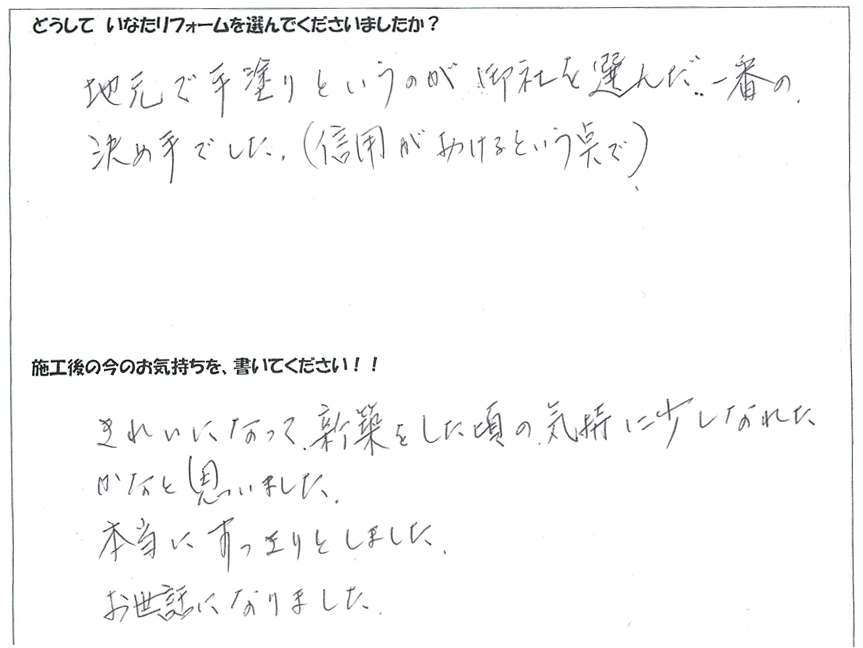 どうして いなたリフォームを選んでくださいましたか？
地元で手塗りというのが御社を選んだ一番の
決め手でした。(信用がおけるという点で)
施工後の今のお気持ちを、書いてください！！
きれいになって、新築をした頃の気持に少しなれた
かなと思いました。
本当にすっきりとしました。
お世話になりました。